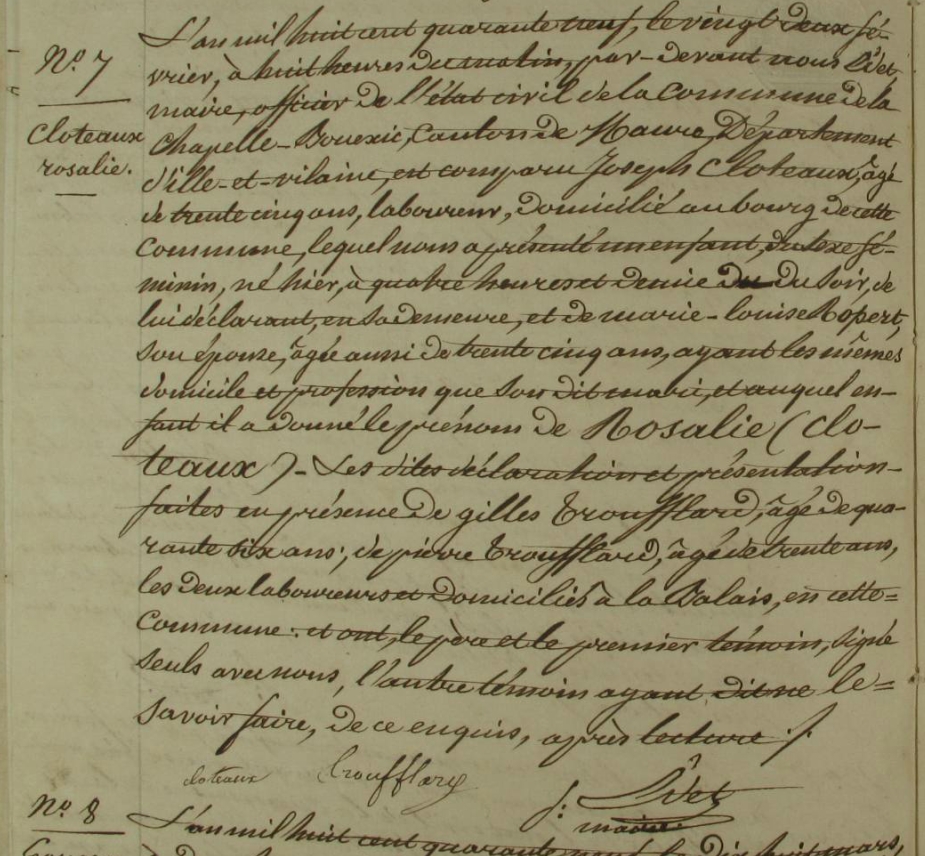 N.º 7
cloteaux
rosalie.
L'an mil huit cent quarante neuf, le vingt deux fé-
vrier, à huit heures du matin, par-devant nous
maire, officier de l'état civil de la commune de la
chapelle-Bouexic, canton de Maure, Département
d'ille-et-vilaine, est comparu Joseph Cloteaux, âgé
de trente cinq ans, laboureur, domicilié au bourg de cette
commune, lequel nous a présenté un enfant, du sexe fé-
minin, né hier, à quatre heures et demie du du soir, de
lui déclarant, en sa demeure, et de marie-louise Ropert,
son épouse, âgée aussi de trente cinq ans, ayant les mêmes
domicile et profession que son dit mari, et auquel en-
fant il a donné le prénom de Rosalie (clo-
teaux) - Les dites déclaration et présentation
faites en présence de gilles Troufflard, âgé de qua-
rante six ans; de pierre Troufflard, âgé de trente ans,
les deux laboureurs et domiciliés à la Balais, en cette=
commune: et ont, le père et le premier témoin, signé
seuls avec nous, l'autre témoin ayant dit ne le=
savoir faire, de ce enquis, après lecture ./.
cloteaux Troufflard
maire.
N.º 8
L'an mil huit cent quarante neuf, le dix huit mars,